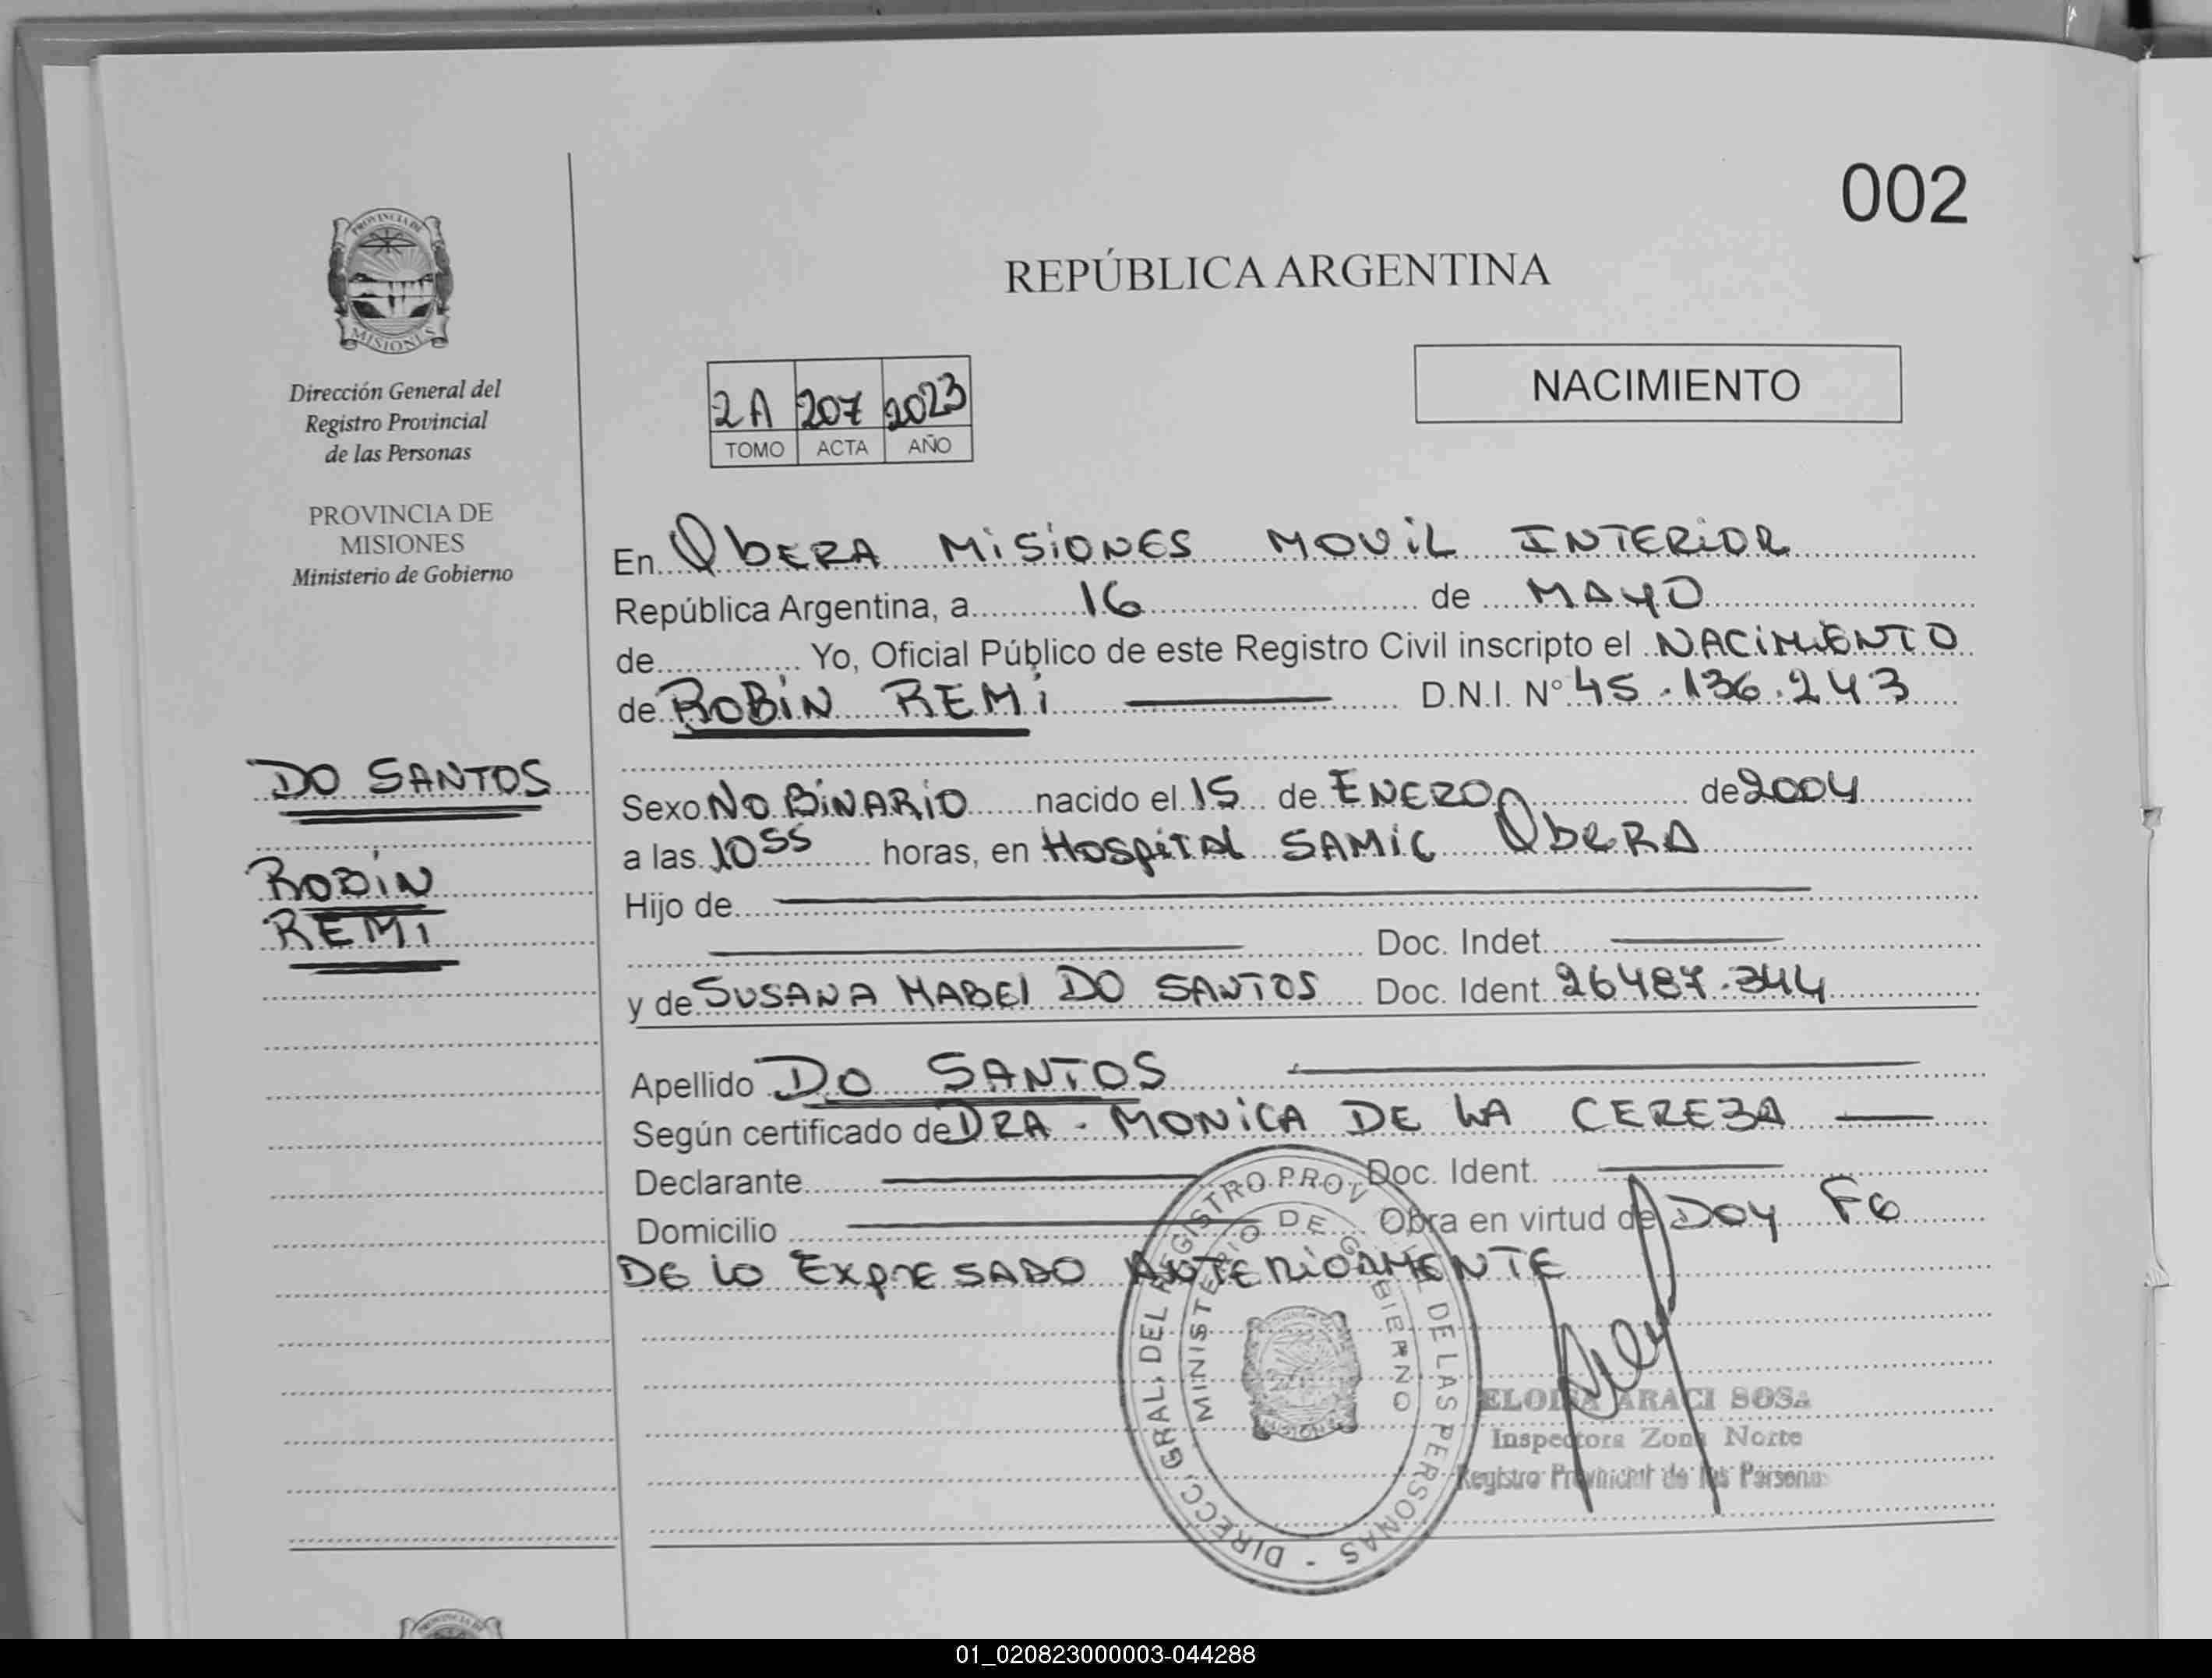 002
PROVINCIA DE
MISIONES
Dirección General del
Registro Provincial
de las Personas
PROVINCIA DE
MISIONES
Ministerio de Gobierno
DO SANTOS
ROBIN
REMI
REPÚBLICA ARGENTINA
NACIMIENTO
2A 207 2023
TOMO ACTA AÑO
En OBERA MISIONES MOVIL INTERIOR
República Argentina, a 16 de MAYO
de Yo, Oficial Público de este Registro Civil inscripto el NACIMIENTO
de ROBIN REMI D.N.I. N° 45.136.243
Sexo NO BINARIO nacido el 15 de ENERO de 2004
a las 10 55 horas, en HOSPITAL SAMIC OBERA
Hijo de
Doc. Indet.
y de SUSANA MABEL DO SANTOS Doc. Ident. 26487.344
Apellido DO SANTOS
Según certificado de DRA. MONICA DE LA CEREZA
Declarante Doc. Ident.
Domicilio Obra en virtud de DOY FE
DE LO EXPRESADO ANTERIORMENTE
DIRECC. GRAL. DEL REGISTRO PROV DE LAS PERSONAS -
MINISTERIO DE GOBIERNO
MISIONES
ELOISA ARACI SOSA
Inspectora Zona Norte
Registro Provincial de las Personas
01_020823000003-044288